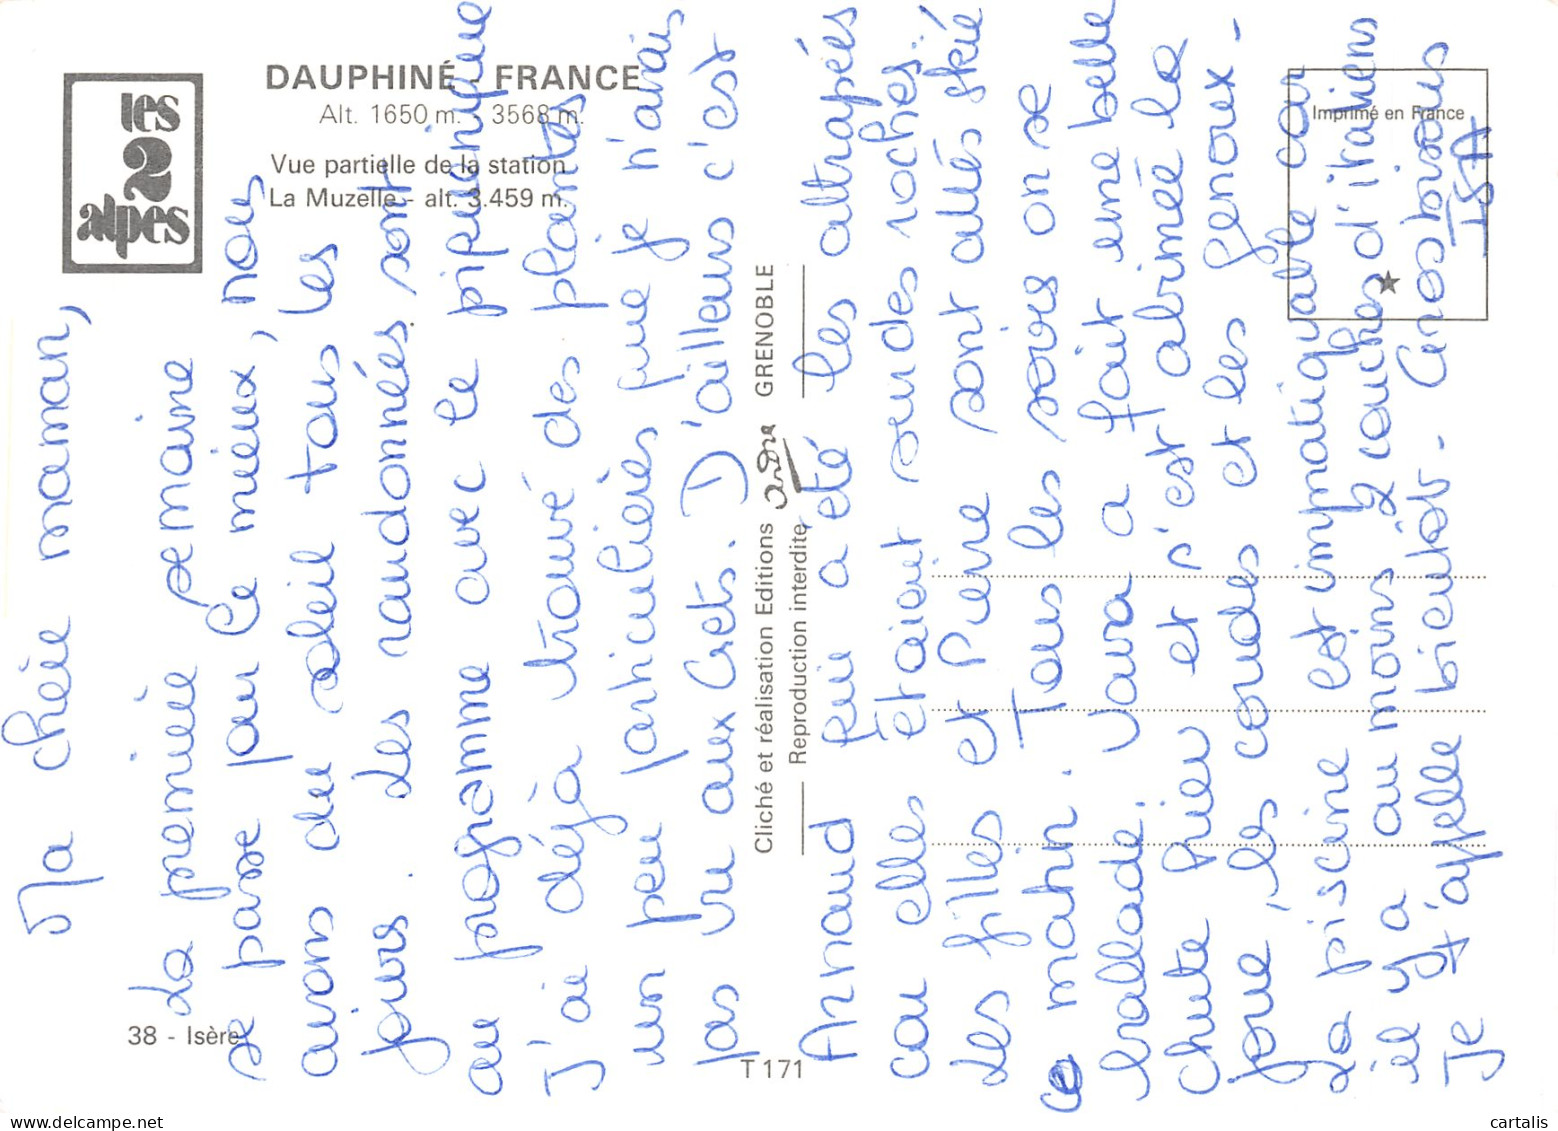 les
2
alpes
DAUPHINÉ - FRANCE
Alt. 1650 m. - 3568 m.
Vue partielle de la station
La Muzelle - alt. 3.459 m.
38 - Isère
T 171
Cliché et réalisation Editions André GRENOBLE
Reproduction interdite
Imprimé en France
Ma chérie maman,
La première semaine
se passe pour le mieux, nous
avons du soleil tous les
jours. des randonnées sont
au programme avec le pique nique
J'ai déjà trouvé des plantes
un peu particulières que je n'avais
pas vu aux Gets. D'ailleurs c'est
Arnaud qui a été les attrapées
car elles étaient sur des roches...
des filles et Pierre sont allés skié
ce matin. Tous les soirs on se
ballade. Java a fait une belle
chute hier et s'est abrimée la
joue, les coudes et les genoux -
La piscine est impratiquable car
il y a au moins 2 couches d'italiens
Je t'appelle bientôt - Gros bisous
ISA
cartalis
www.delcampe.net